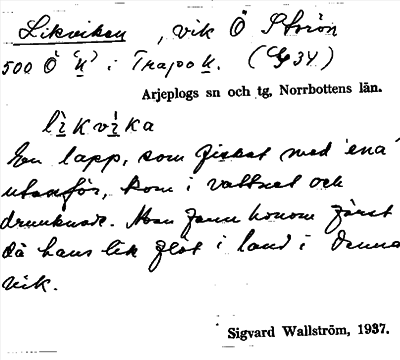 Likviken, vik Ö Storön
500 Ö "k" i Trapo k. (Cg 34)
Arjeplogs sn och tg, Norrbottens län.
lìkvìka
En lapp, som fiskat med ena
utanför, kom i vattnet och
drunknade. Man fann honom först
då hans lik flöt i land i denna
vik.
Sigvard Wallström, 1937.